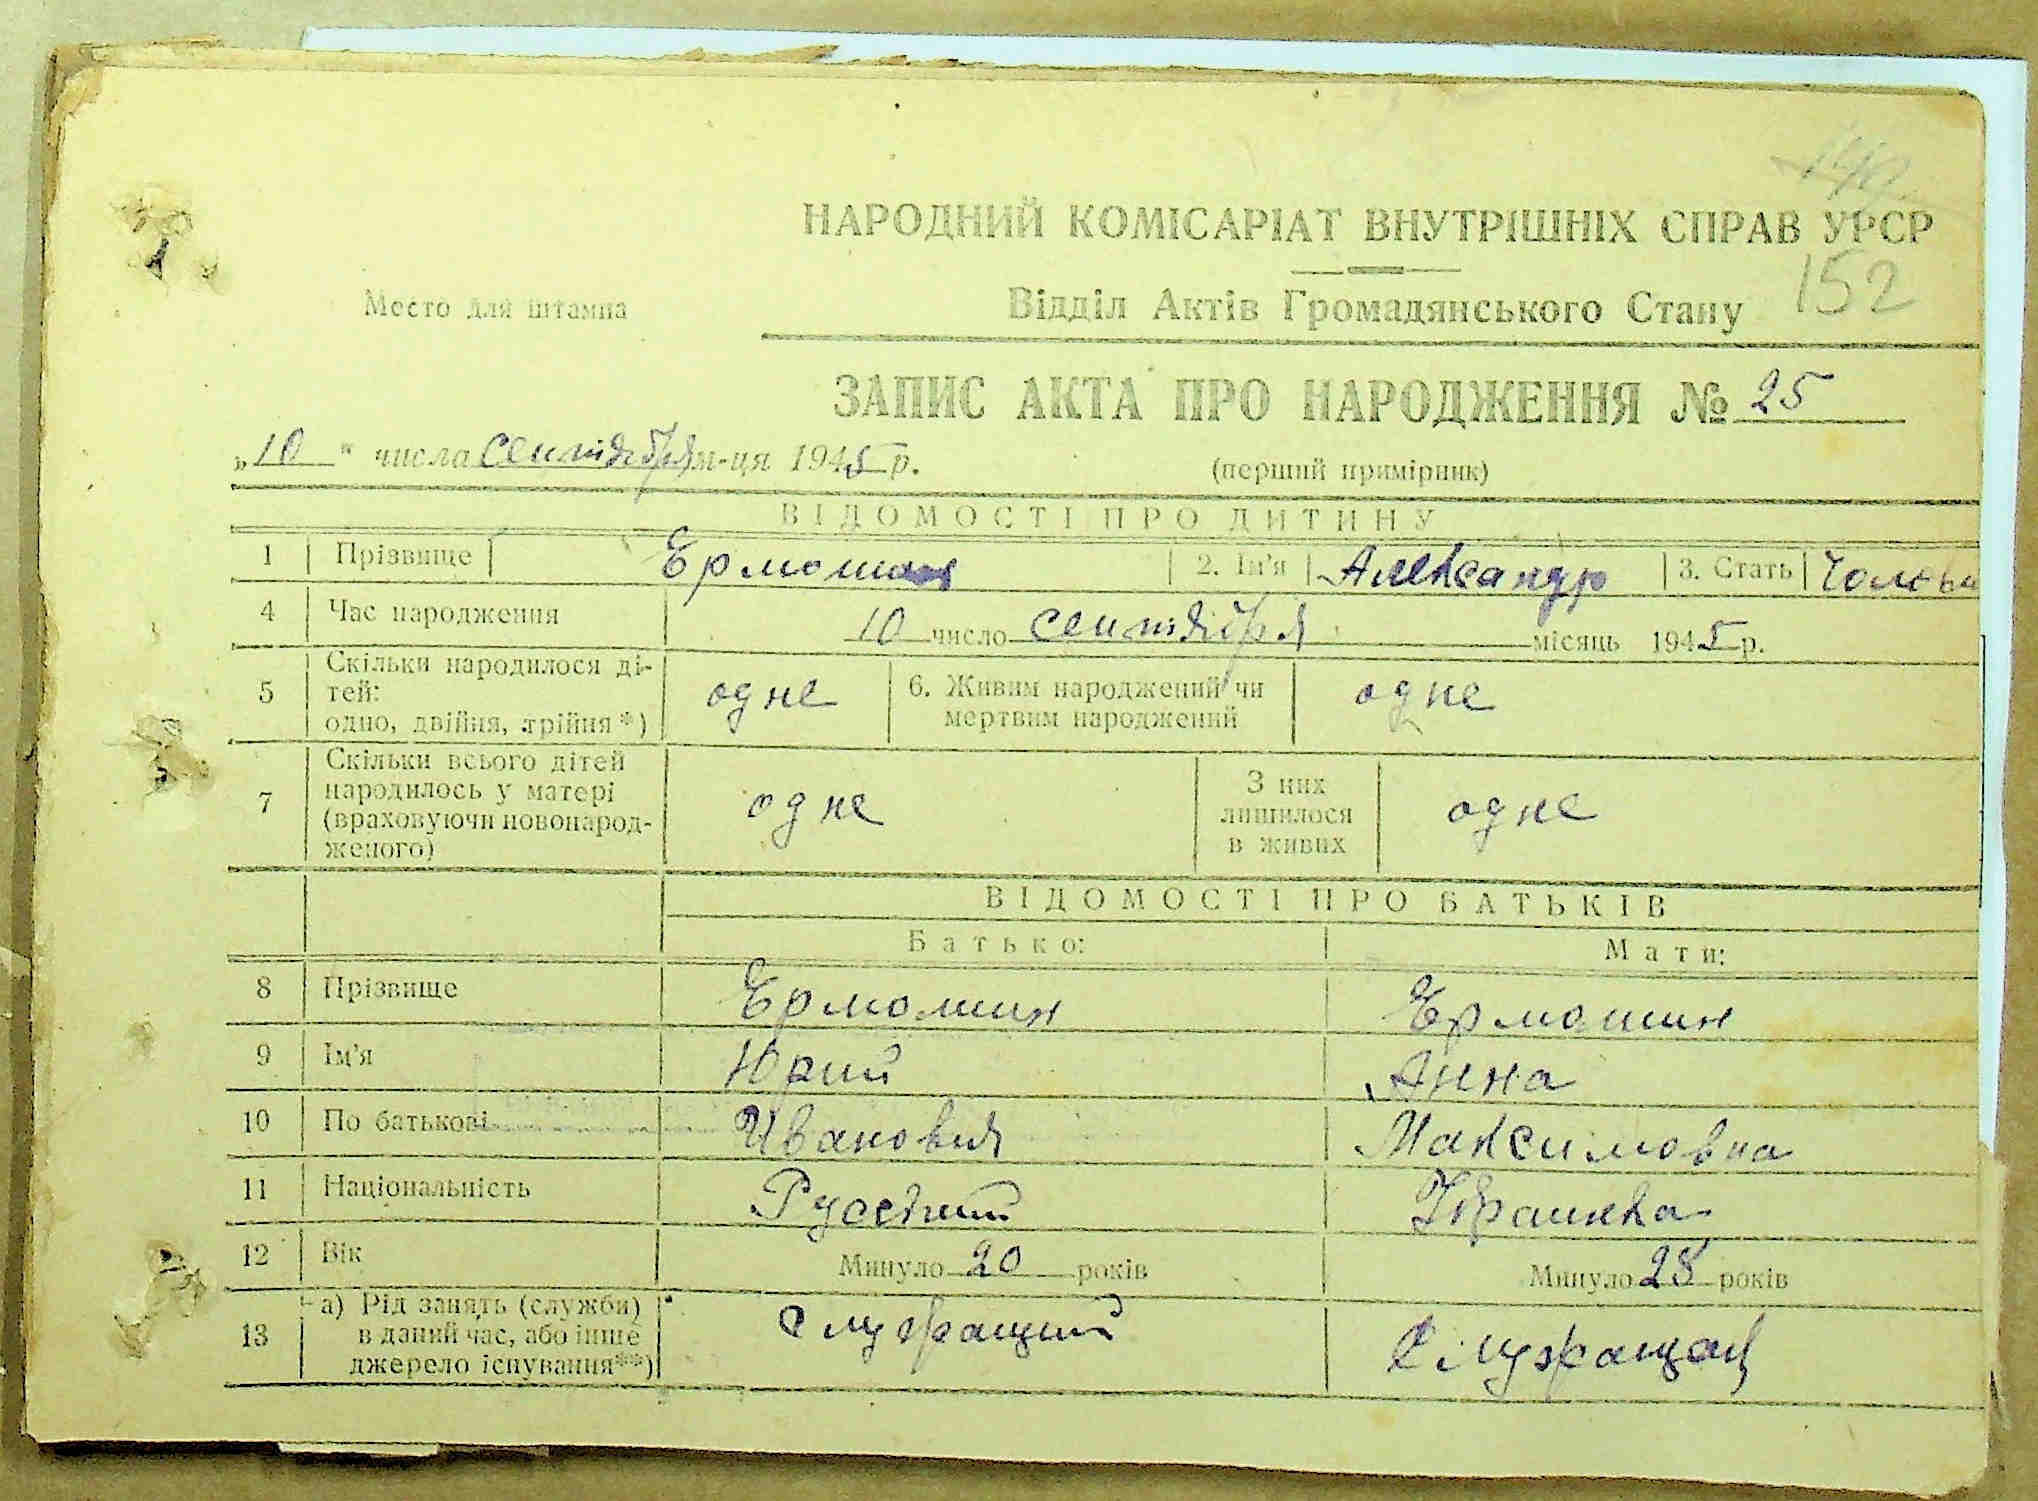 НАРОДНИЙ КОМІСАРІАТ ВНУТРІШНІХ СПРАВ УРСР
152
Место для штампа
Відділ Актів Громадянського Стану
ЗАПИС АКТА ПРО НАРОДЖЕННЯ № 25
„10“ числа сентября м-ця 1945 р.
(перший примірник)
ВІДОМОСТІ ПРО ДИТИНУ
1 Прізвище Ермошин 2. Ім'я Александр 3. Стать Чолові
4 Час народження 10 число сентября місяць 1945 р.
5 Скільки народилося ді-
тей:
одно, двійня, трійня*) одне 6. Живим народжений чи
мертвим народжений одне
7 Скільки всього дітей
народилось у матері
(враховуючи новонарод-
женого) одне З них
лишилося
в живих одне
ВІДОМОСТІ ПРО БАТЬКІВ
Батько: Мати:
8 Прізвище Ермошин Ермошин
9 Ім'я Юрий Анна
10 По батькові Иванович Максимовна
11 Національність Русский Украинка
12 Вік Минуло 20 років Минуло 28 років
13 а) Рід занять (служби)
в даний час, або інше
джерело існування**) Служащий Служащая